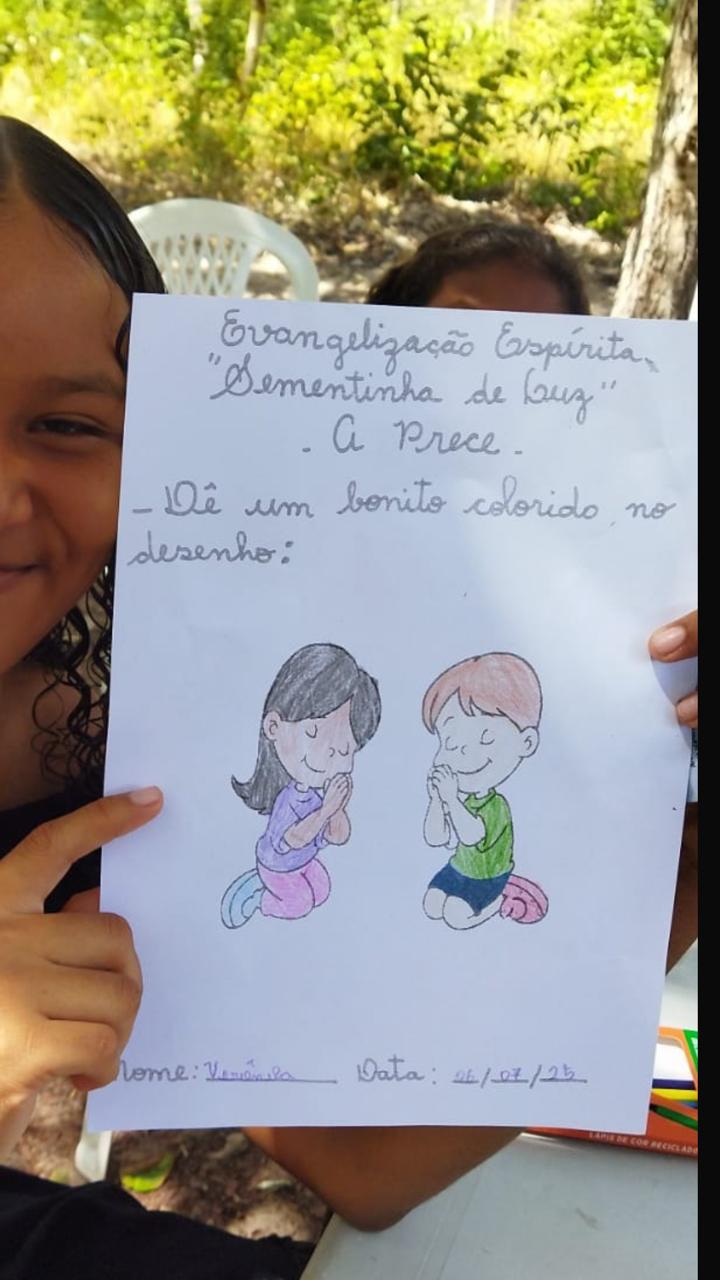 Evangelização Espírita
"Sementinha de Luz"
- A Prece -
- Dê um bonito colorido no
desenho:
Nome: Data: 06/07/25
LÁPIS DE COR RECICLADO